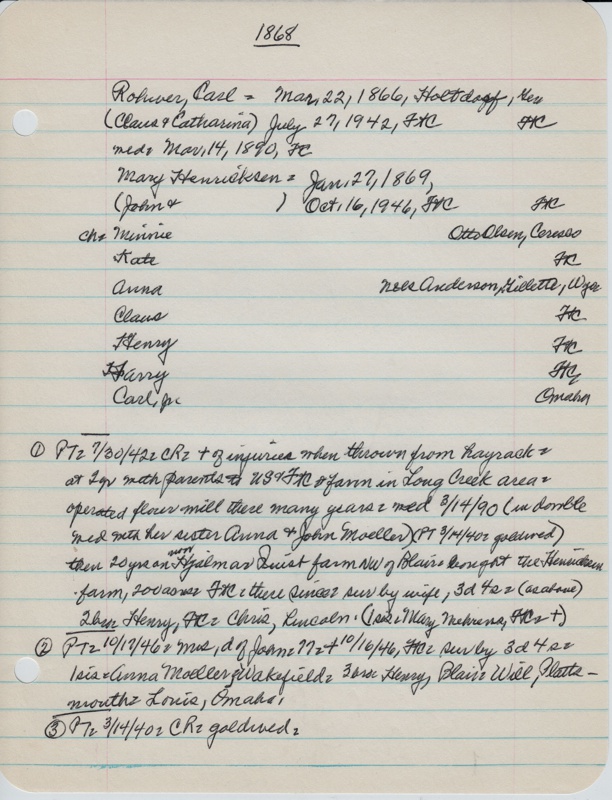 1868
Rohwer, Carl = Mar, 22, 1866, Holtdorf, Ger
(Claus & Catharina) July 27, 1942, FC FC
med= Mar, 14, 1890, FC
Mary Henricksen = Jan, 27, 1869,
(John & ) Oct, 16, 1946, FC FC
ch= Minnie Otto Olsen, Ceresco
Kate FC
Anna Nels Anderson, Gillette, Wyo
Claus FC
Henry FC
Harry FC
Carl, jr. Omaha
① PT= 7/30/42= CR= + of injuries when thrown from hayrack=
at 2yr with parents to US & FC & farm in Long Creek area=
operated flour mill there many years= med 3/14/90 (in double
med with her sister Anna & John Moeller) (PT 3/14/40= goldwed)
then 20yrs on now Hjalmar Quist farm NW of Blair= bought the Henricksen
farm, 200 acres FC= there since= sur by wife, 3d 4s= (as above)
2bro Henry, FC= Chris, Lincoln. (1sis= Mary Mehrens, FC= +)
② PT= 10/17/46= Mrs, d of John= ??= + 10/16/46, FC= sur by 3d 4s=
1sis= Anna Moeller, Wakefield= 3bro= Henry, Blair= Will Platts-
mouth= Louis, Omaha,
③ PT= 3/14/40= CR= goldwed=